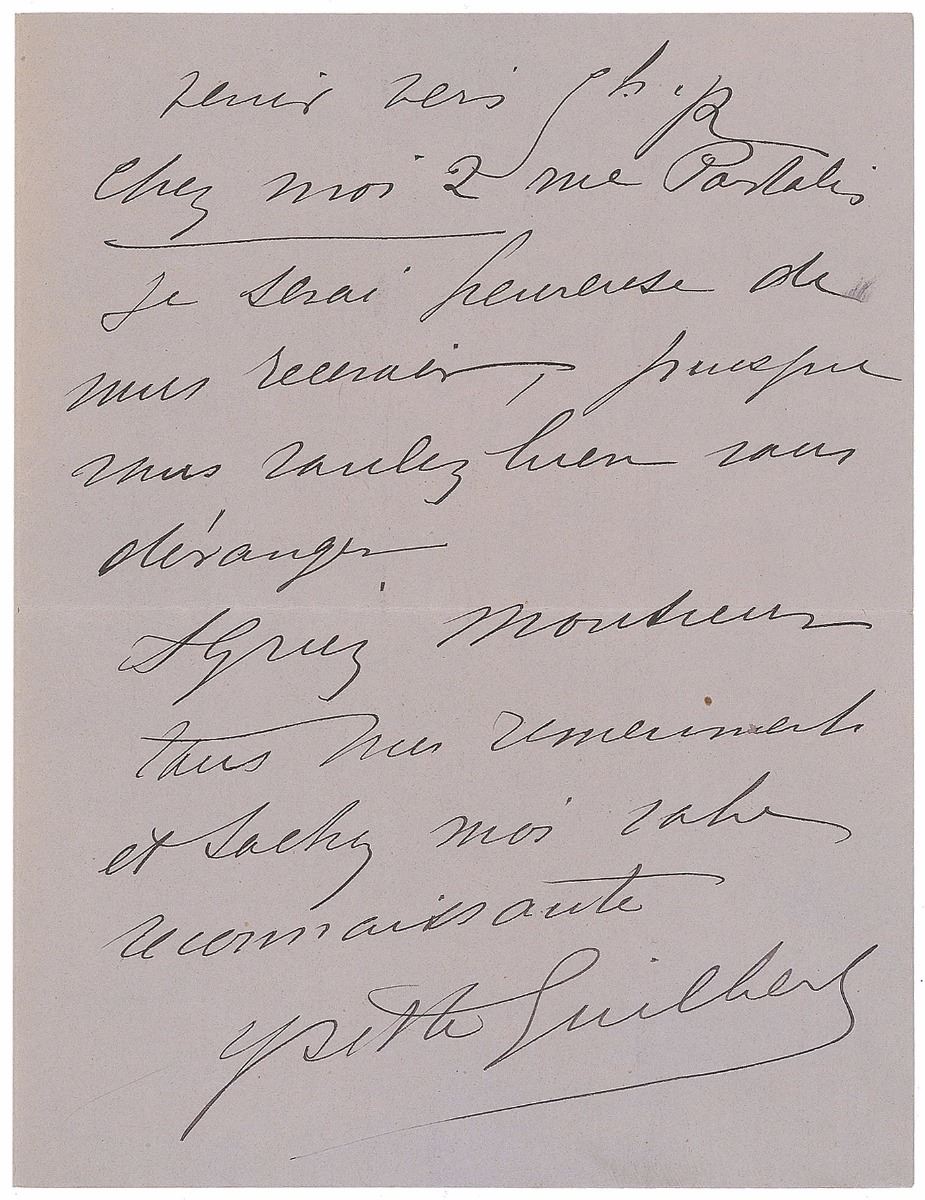 venir vers 5h.
chez moi 2 rue Portalis
je serai heureuse de
vous recevoir, puisque
vous voulez bien vous
déranger
Agréez Monsieur
tous mes remerciments
et sachez moi votre
reconnaissante
Yvette Guilbert